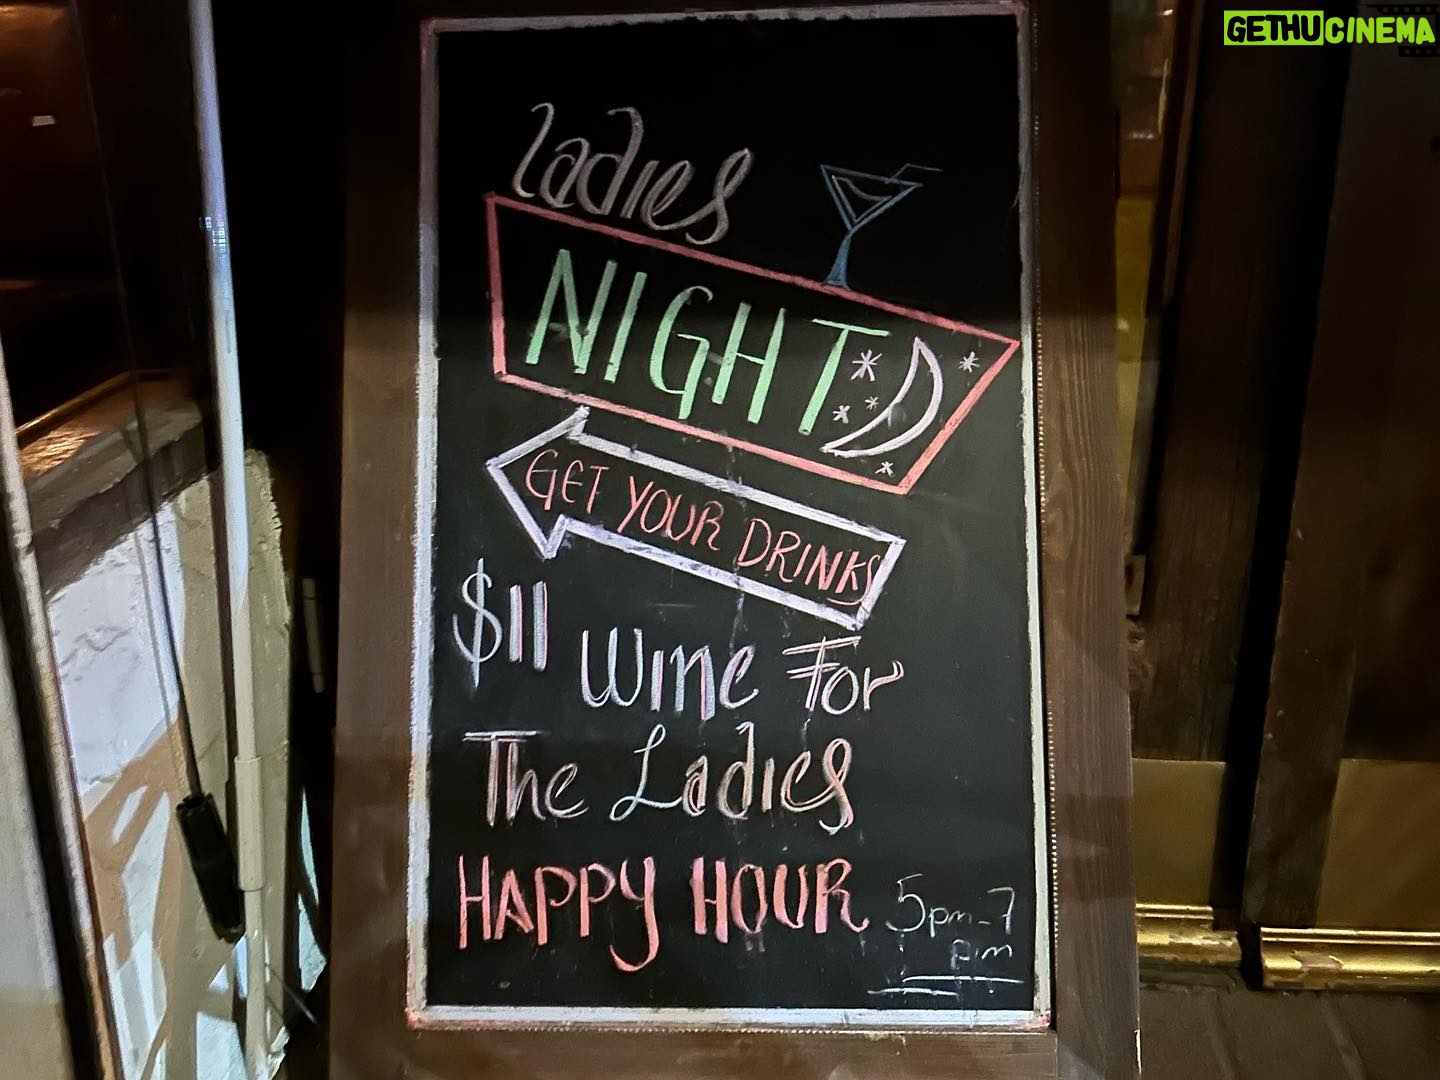 GETHUCINEMA
Ladies
NIGHT
GET YOUR DRINKS
$11 Wine For
The Ladies
HAPPY HOUR 5pm-7
pm